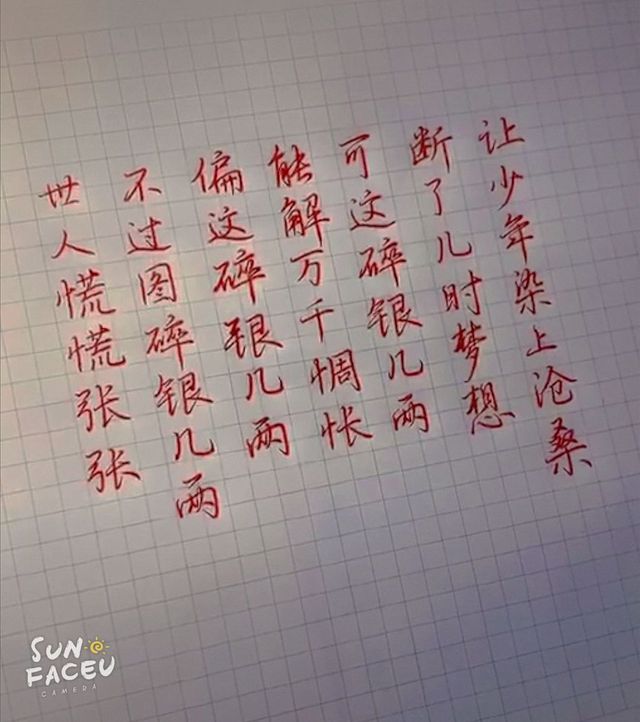 世人慌慌张张
不过图碎银几两
偏这碎银几两
能解万千惆怅
可这碎银几两
断了儿时梦想
让少年染上沧桑
SUN
FACEU
CAMERA